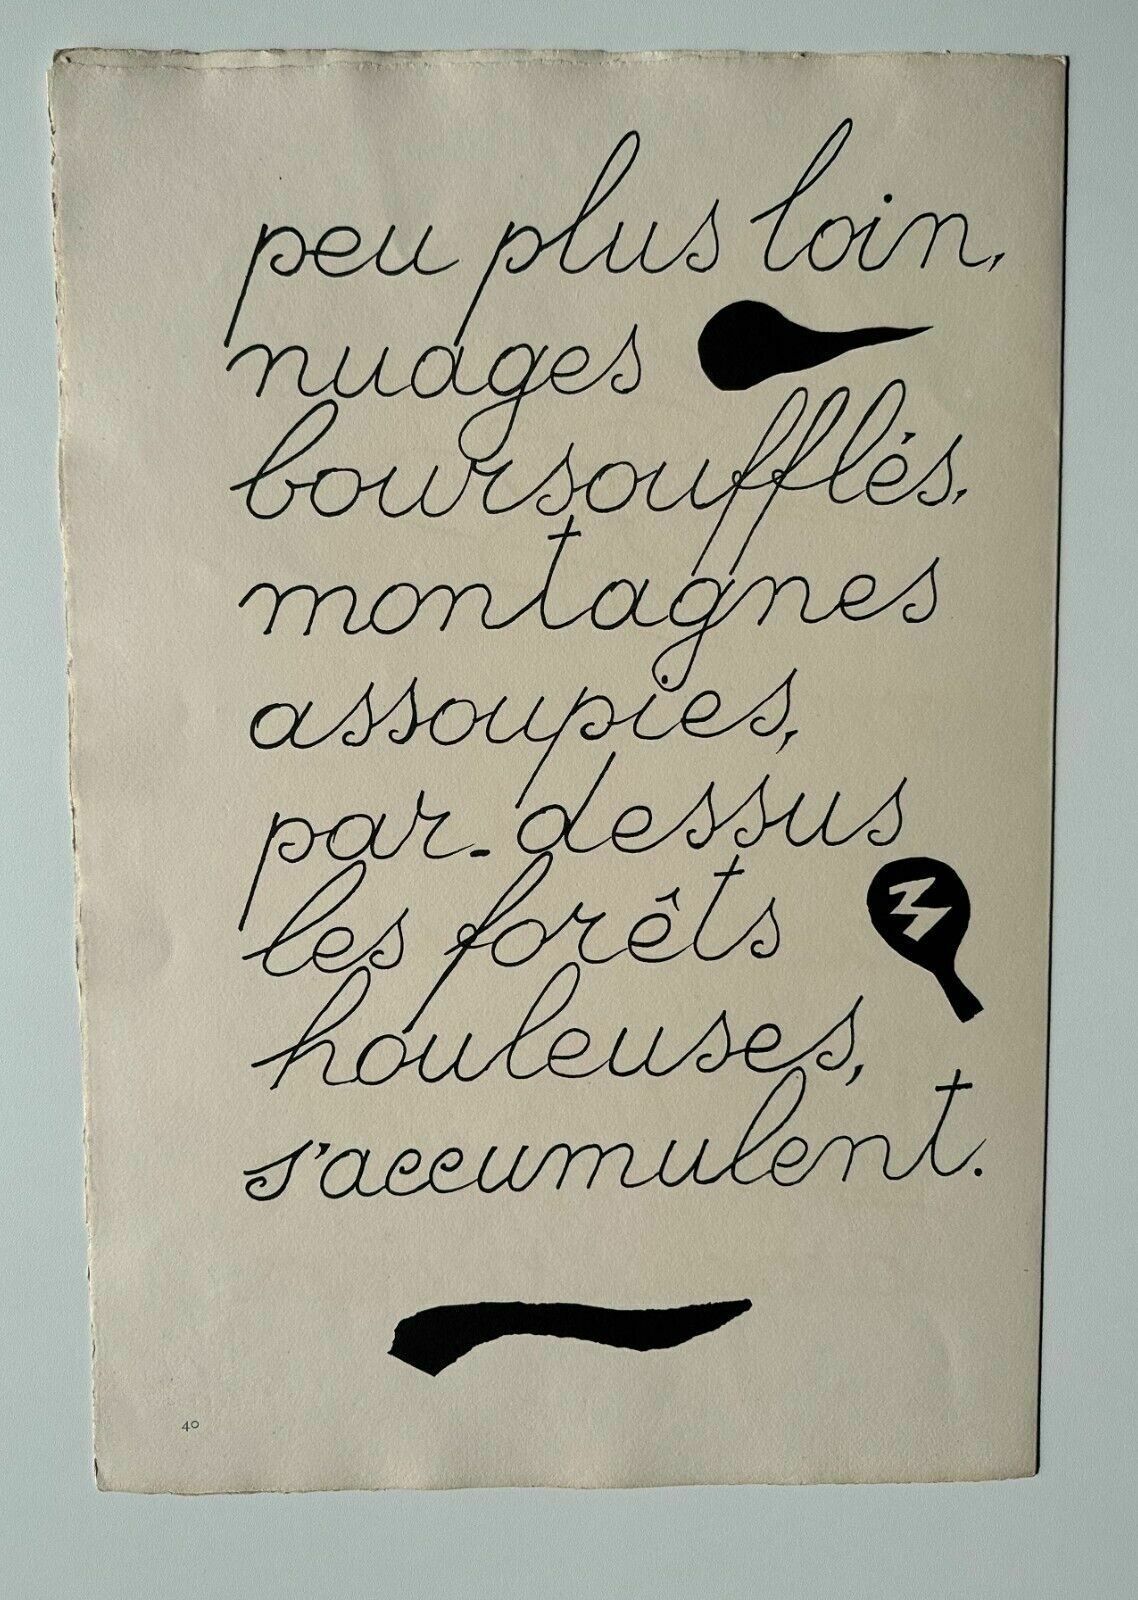 peu plus loin,
nuages
boursoufflés,
montagnes
assoupies,
par-dessus
les forêts
houleuses,
s'accumulent.
40